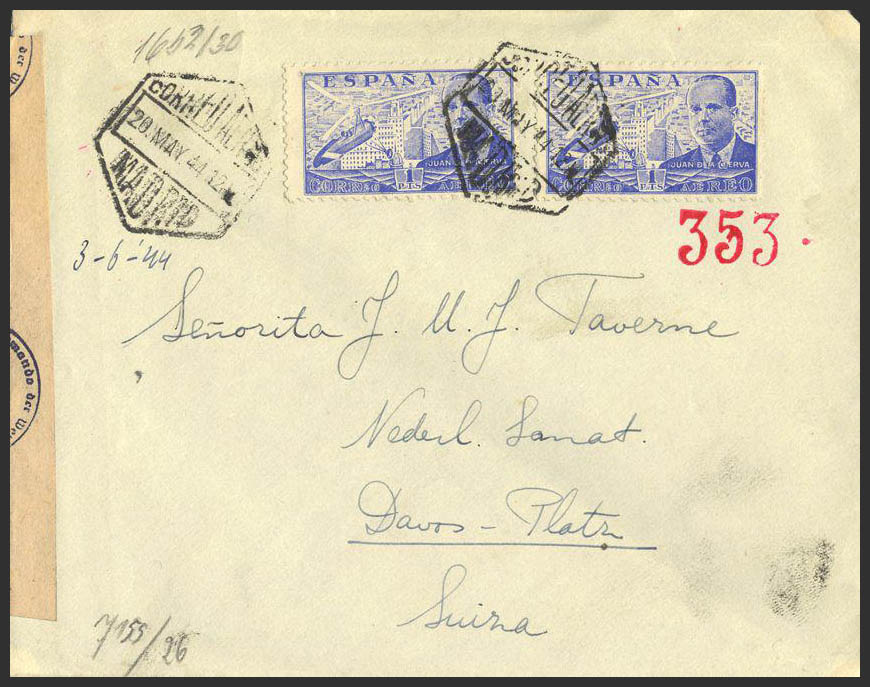 1652/30
CORREO AEREO
20 MAY 44 12
MADRID
ESPAÑA
JUAN DE LA CIERVA
1 PTS
CORREO AEREO
MAY 44
ESPAÑA
JUAN DE LA CIERVA
1 PTS
CORREO AEREO
353
3-6-'44
Señorita J. M. J. Taverne
Nederl. Sanat.
Davos-Platz
Suiza
7155/26
der
mando der We